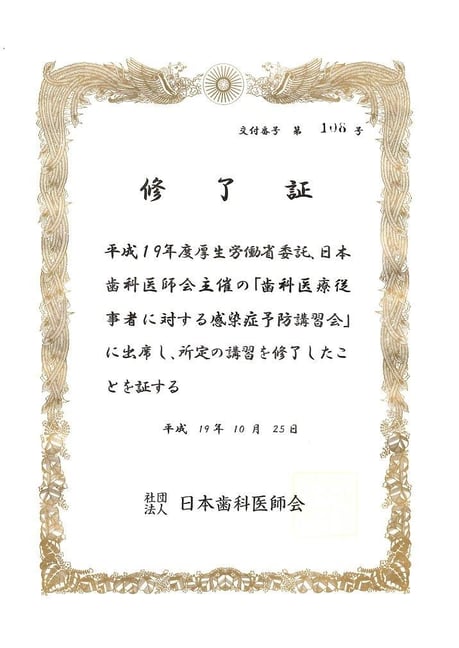 交付番号 第 108 号
修了証
平成19年度厚生労働省委託、日本
歯科医師会主催の「歯科医療従
事者に対する感染症予防講習会」
に出席し、所定の講習を修了したこ
とを証する
平成 19年 10月 25日
社団法人 日本歯科医師会